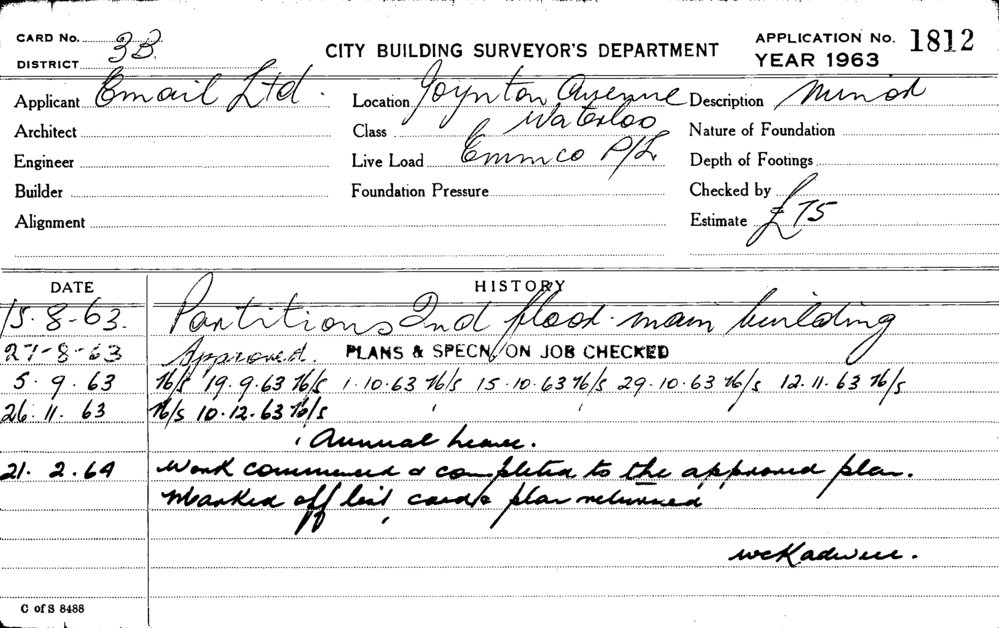 CARD No.
DISTRICT 3B.
CITY BUILDING SURVEYOR'S DEPARTMENT
APPLICATION No. 1812
YEAR 1963
Applicant Email Ltd. Location Joynton Avenue Description Minor
Architect Class Waterloo Nature of Foundation
Engineer Live Load Emmco P/L Depth of Footings
Builder Foundation Pressure Checked by
Alignment Estimate £75
DATE HISTORY
15.8-63. Partitions 2nd floor main building
27-8-63 Approved. PLANS & SPECN. ON JOB CHECKED
5.9.63 N/S 19.9.63 N/S 1.10.63 N/S 15.10.63 N/S 29.10.63 N/S 12.11.63 N/S
26.11.63 N/S 10.12.63 N/S
Annual leave.
21.2.64 Work commenced & completed to the approved plan.
Marked off list, card & plan returned
C of S 8488